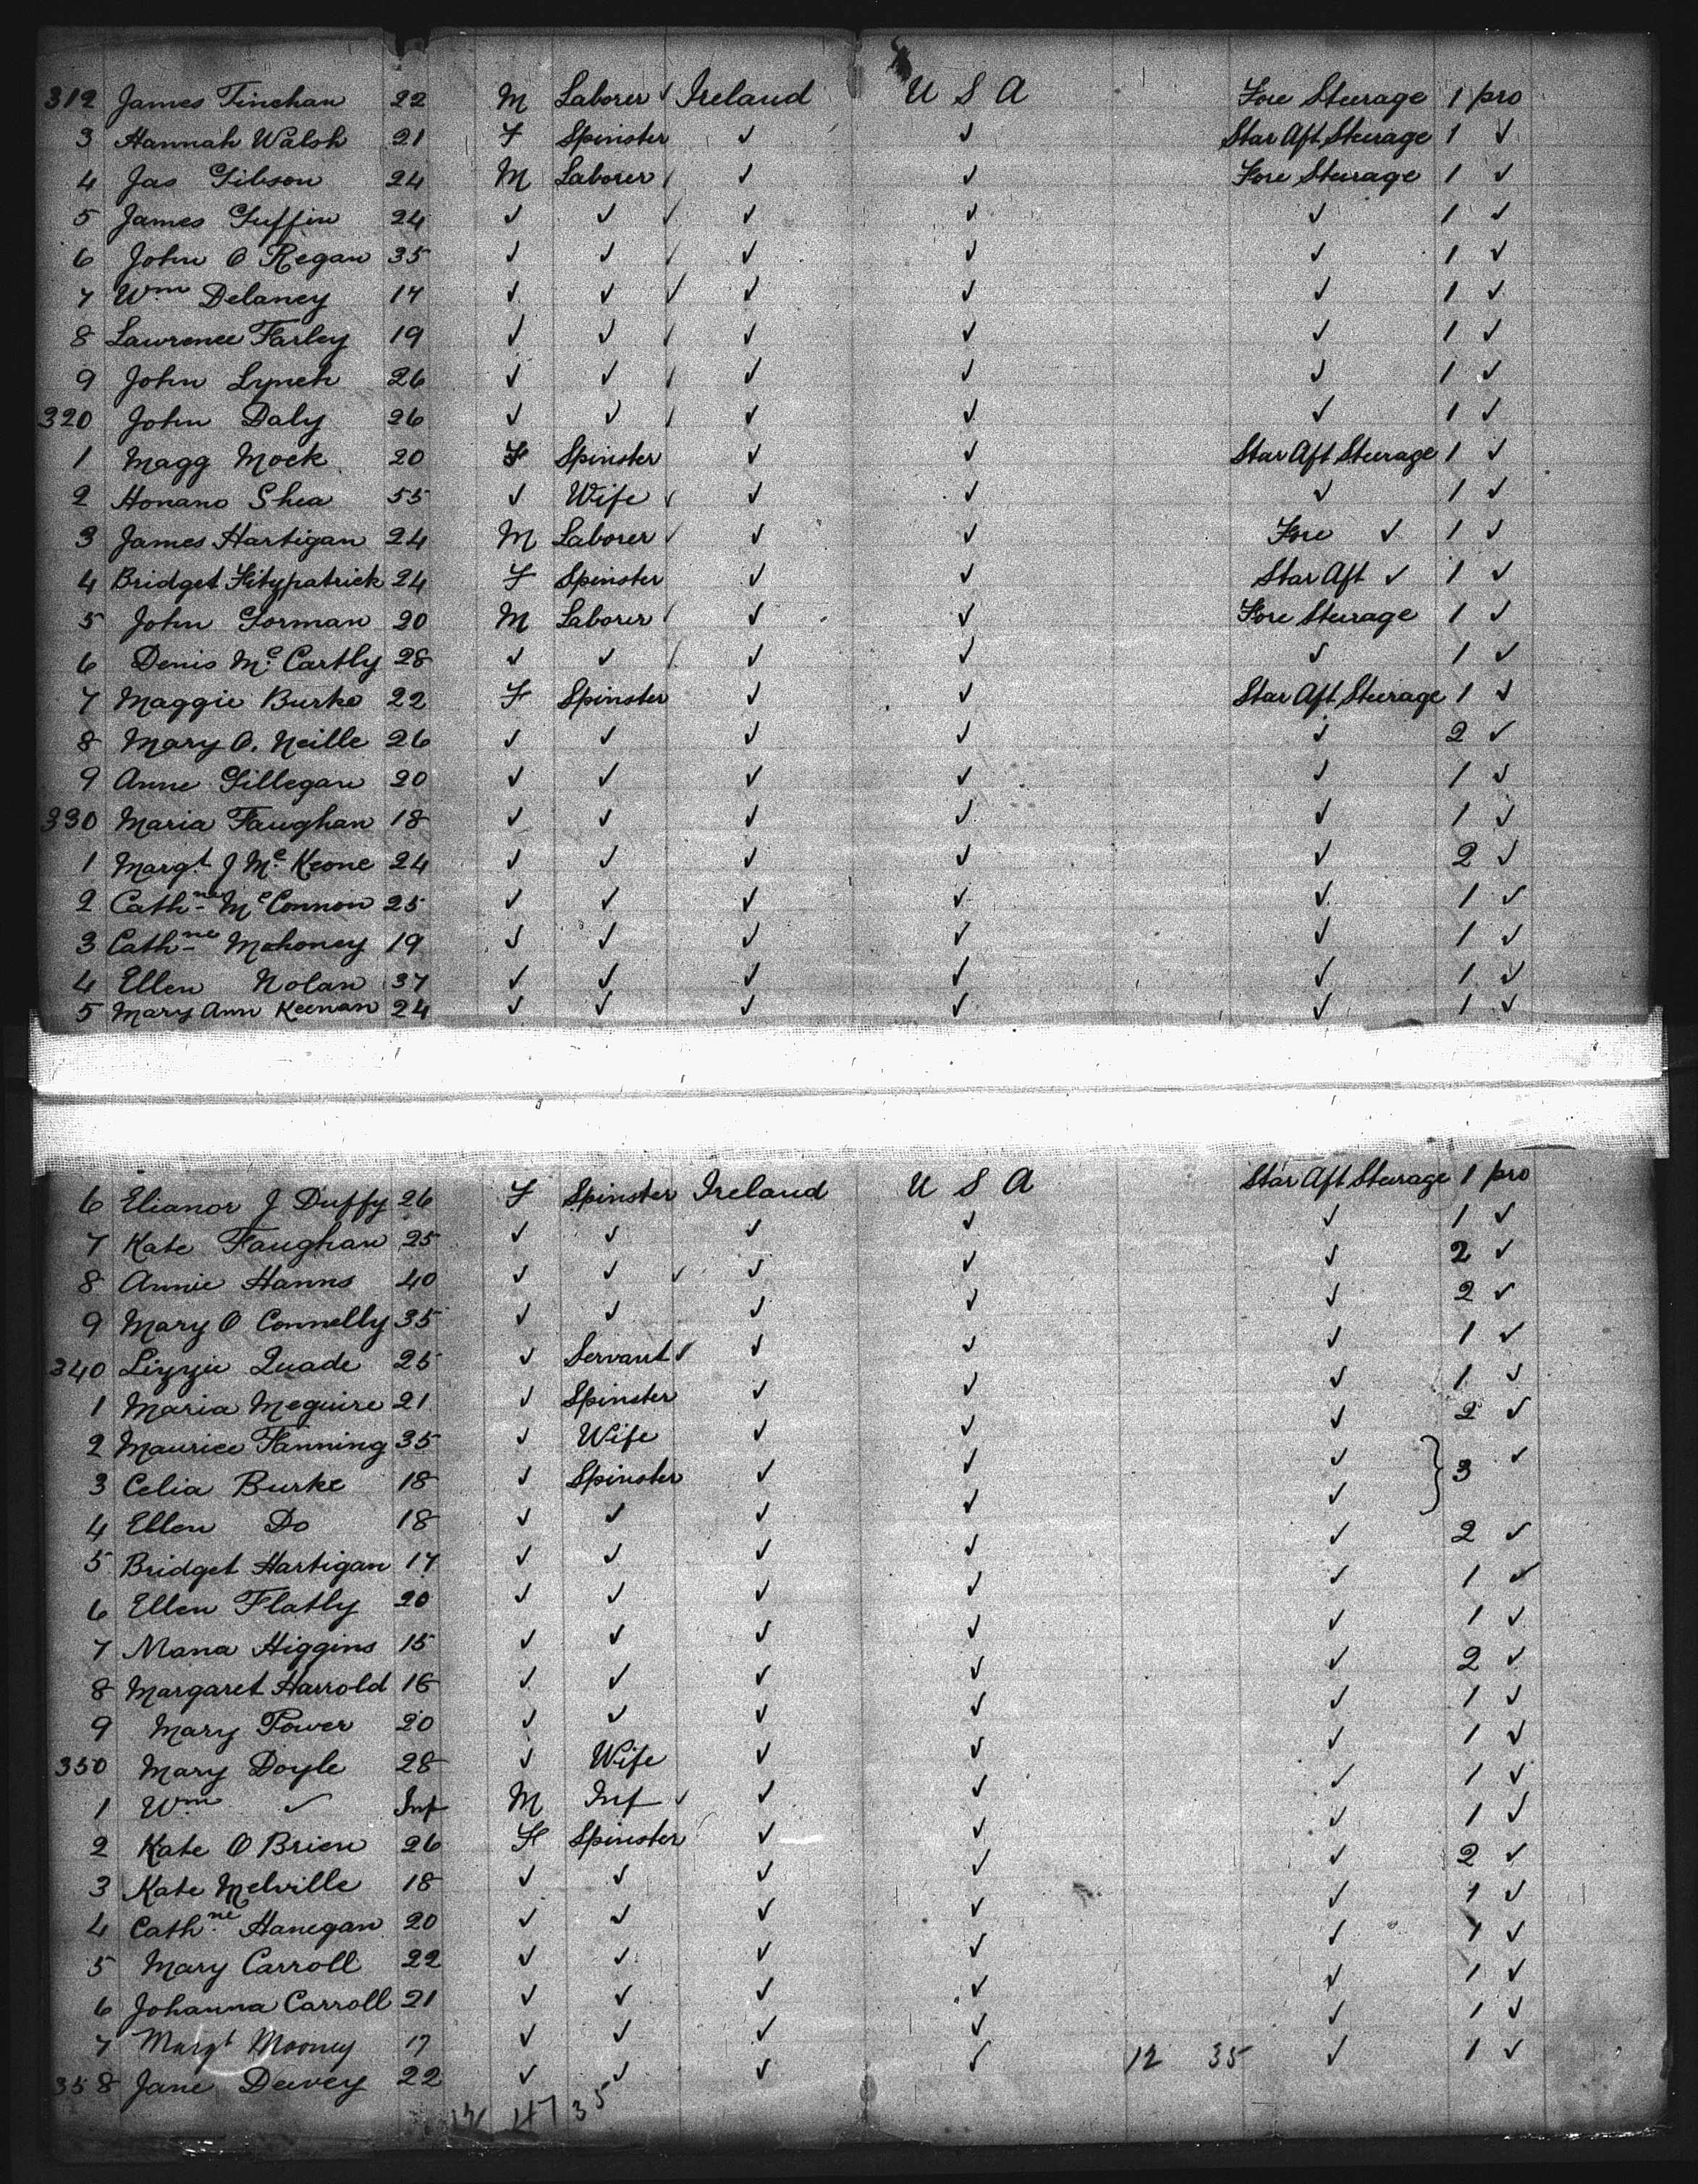 312 James Finehan 22 M Laborer ✓ Ireland U S A Fore Steerage 1 pro
3 Hannah Walsh 21 F Spinster ✓ ✓ Star Aft Steerage 1 ✓
4 Jas Gibson 24 M Laborer / ✓ ✓ Fore Steerage 1 ✓
5 James Guffin 24 ✓ ✓ / ✓ ✓ ✓ 1 ✓
6 John O Regan 35 ✓ ✓ / ✓ ✓ ✓ 1 ✓
7 Wm Delaney 17 ✓ ✓ / ✓ ✓ ✓ 1 ✓
8 Lawrence Farley 19 ✓ ✓ / ✓ ✓ ✓ 1 ✓
9 John Lynch 26 ✓ ✓ / ✓ ✓ ✓ 1 ✓
320 John Daly 26 ✓ ✓ / ✓ ✓ ✓ 1 ✓
1 Magg Mock 20 F Spinster ✓ ✓ Star Aft Steerage 1 ✓
2 Honano Shea 55 ✓ Wife ✓ ✓ ✓ ✓ 1 ✓
3 James Hartigan 24 M Laborer ✓ ✓ ✓ Fore ✓ 1 ✓
4 Bridget Fitzpatrick 24 F Spinster ✓ ✓ Star Aft ✓ 1 ✓
5 John Gorman 20 M Laborer / ✓ ✓ Fore Steerage 1 ✓
6 Denis Mc Cartly 28 ✓ ✓ / ✓ ✓ ✓ 1 ✓
7 Maggie Burke 22 F Spinster ✓ ✓ Star Aft Steerage 1 ✓
8 Mary O. Neille 26 ✓ ✓ ✓ ✓ ✓ 2 ✓
9 Anne Gillegan 20 ✓ ✓ ✓ ✓ ✓ 1 ✓
330 Maria Faughan 18 ✓ ✓ ✓ ✓ ✓ 1 ✓
1 Margt J Mc Keone 24 ✓ ✓ ✓ ✓ ✓ 2 ✓
2 Cathne Mc Connon 25 ✓ ✓ ✓ ✓ ✓ 1 ✓
3 Cathne Mahoney 19 ✓ ✓ ✓ ✓ ✓ 1 ✓
4 Ellen Nolan 37 ✓ ✓ ✓ ✓ ✓ 1 ✓
5 Mary Ann Keenan 24 ✓ ✓ ✓ ✓ ✓ 1 ✓
6 Elianor J Duffy 26 F Spinster Ireland U S A Star Aft Steerage 1 pro
7 Kate Faughan 25 ✓ ✓ ✓ ✓ ✓ 1 ✓
8 Annie Hanns 40 ✓ ✓ ✓ ✓ ✓ ✓ 2 ✓
9 Mary O Connelly 35 ✓ ✓ ✓ ✓ ✓ 2 ✓
340 Lizzie Quade 25 ✓ Servant ✓ ✓ ✓ ✓ 1 ✓
1 Maria Meguire 21 ✓ Spinster ✓ ✓ ✓ 1 ✓
2 Maurice Fanning 35 ✓ Wife ✓ ✓ ✓ 2 ✓
3 Celia Burke 18 ✓ Spinster ✓ ✓ ✓ } 3 ✓
4 Ellen Do 18 ✓ ✓ ✓ ✓ ✓
5 Bridget Hartigan 17 ✓ ✓ ✓ ✓ ✓ 2 ✓
6 Ellen Flatly 20 ✓ ✓ ✓ ✓ ✓ 1 ✓
7 Mana Higgins 15 ✓ ✓ ✓ ✓ ✓ 1 ✓
8 Margaret Harrold 18 ✓ ✓ ✓ ✓ ✓ 2 ✓
9 Mary Power 20 ✓ ✓ ✓ ✓ ✓ 1 ✓
350 Mary Doyle 28 ✓ Wife ✓ ✓ ✓ 1 ✓
1 Wm ✓ Inf M Inf ✓ ✓ ✓ ✓ 1 ✓
2 Kate O Brien 26 F Spinster ✓ ✓ ✓ 1 ✓
3 Kate Melville 18 ✓ ✓ ✓ ✓ ✓ 2 ✓
4 Cathne Hanegan 20 ✓ ✓ ✓ ✓ ✓ 1 ✓
5 Mary Carroll 22 ✓ ✓ ✓ ✓ ✓ 1 ✓
6 Johanna Carroll 21 ✓ ✓ ✓ ✓ ✓ 1 ✓
7 Margt Mooney 17 ✓ ✓ ✓ ✓ ✓ 1 ✓
358 Jane Deevey 22 ✓ ✓ ✓ ✓ 12 35 ✓ 1 ✓
12 47 35